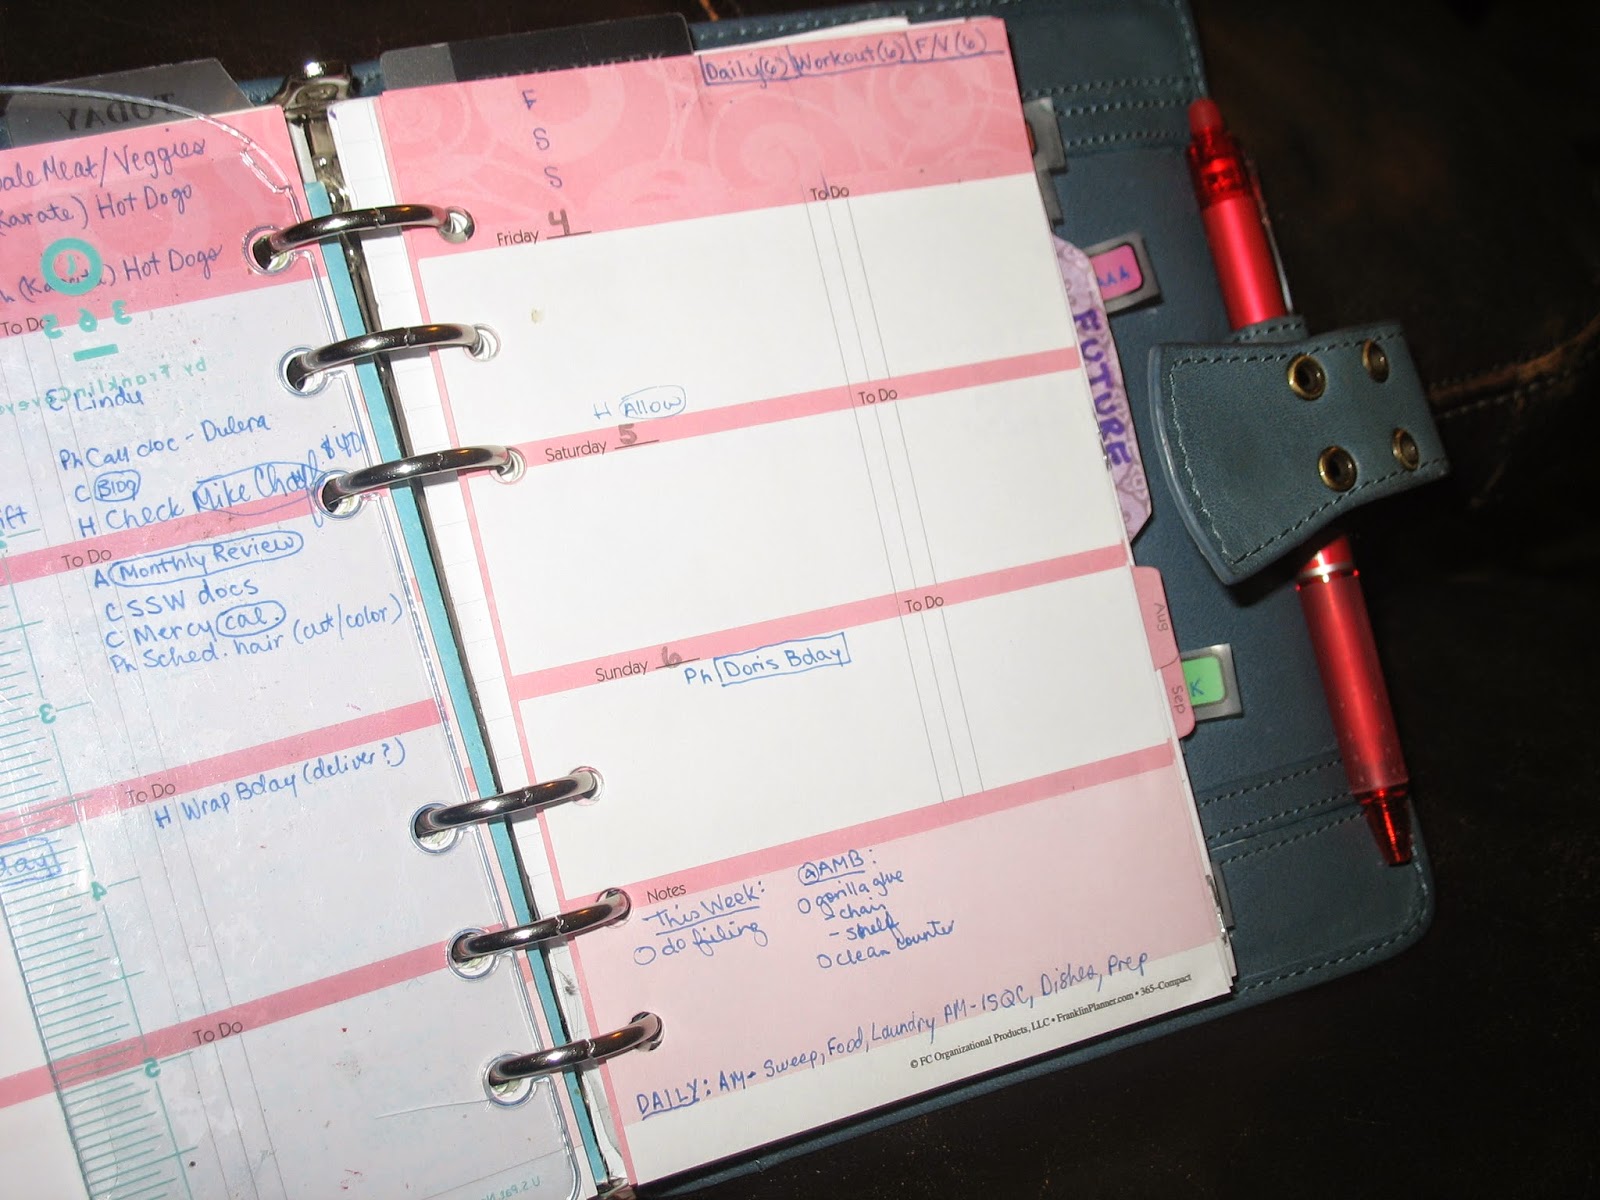 TODAY
ale Meat/Veggies
Karate) Hot Dogs
Hot Dogs
To Do
365
by FranklinCovey
E Lindy
Ph Call doc - Dulera
C Bldg
H Check Mike $40
ift
To Do
A Monthly Review
C SSW docs
C Mercy cal.
Ph Sched. hair (cut/color)
3
To Do
H Wrap Bday (deliver?)
day
4
To Do
5
THIS WEEK
Daily(6) Workout(6) F/V(6)
F
S
S
To Do
Friday 4
H Allow
To Do
Saturday 5
To Do
Sunday 6
Ph Doris Bday
Notes
This Week:
O do filing
@AMB:
O gorilla glue
- chair
- shelf
O clean counter
DAILY: AM- Sweep, Food, Laundry AM-15QC, Dishes, Prep
© FC Organizational Products, LLC • FranklinPlanner.com • 365-Compact
AAA
FUTURE
Aug
Sep
K